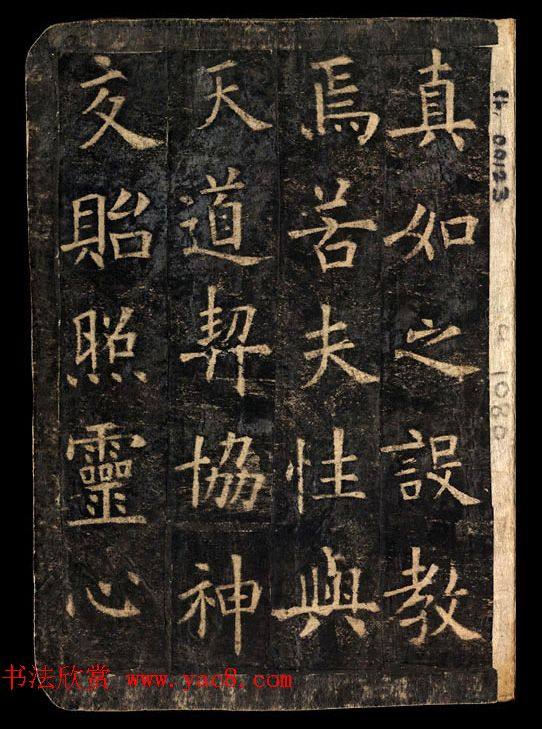 真如之設教
焉若夫性與
天道契協神
交貽照靈心
书法欣赏 www.yac8.com